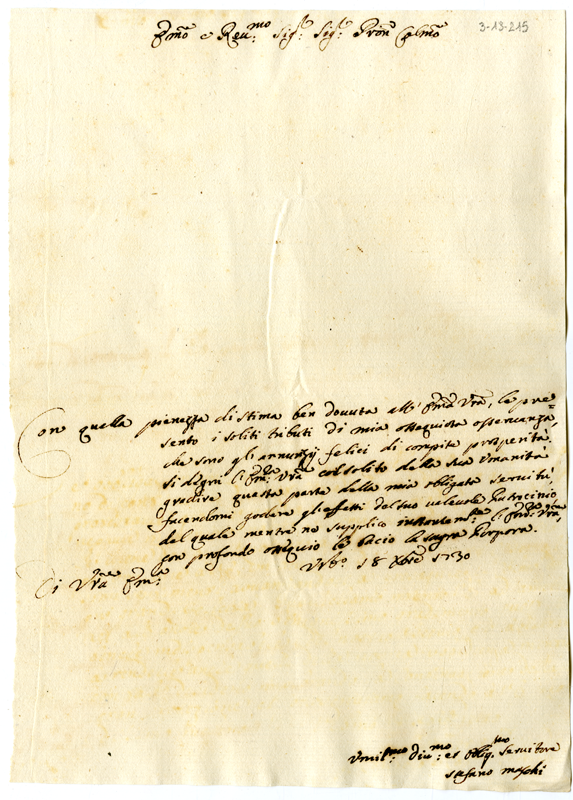 Em̃o e Reu:mo Sig:r Sig:r Pron̄ Col̃mo
3-13-215
Con quella pienezza di stima ben douuta all' Em̃a Vr̃a, le pre=
sento i soliti tributi di mia ossequiosa osseruanza,
che sono gli annunzij felici di compita prosperità.
Si degni l'Em̃: Vr̃a col solito della sua Vmanità
gradire questa parte della mia obligata seruitù,
facendomi godere gli effetti del suo valeuole Patrocinio,
del quale mentre ne supplico l'Em̃: Vr̃a,
con profondo ossequio le bacio la sagra Porpora.
Di Vr̃a Em̃:
Vrb:o 18 Xbre 1730
Vmil:mo diu:mo et oblig:mo seruitore
stefano maschi